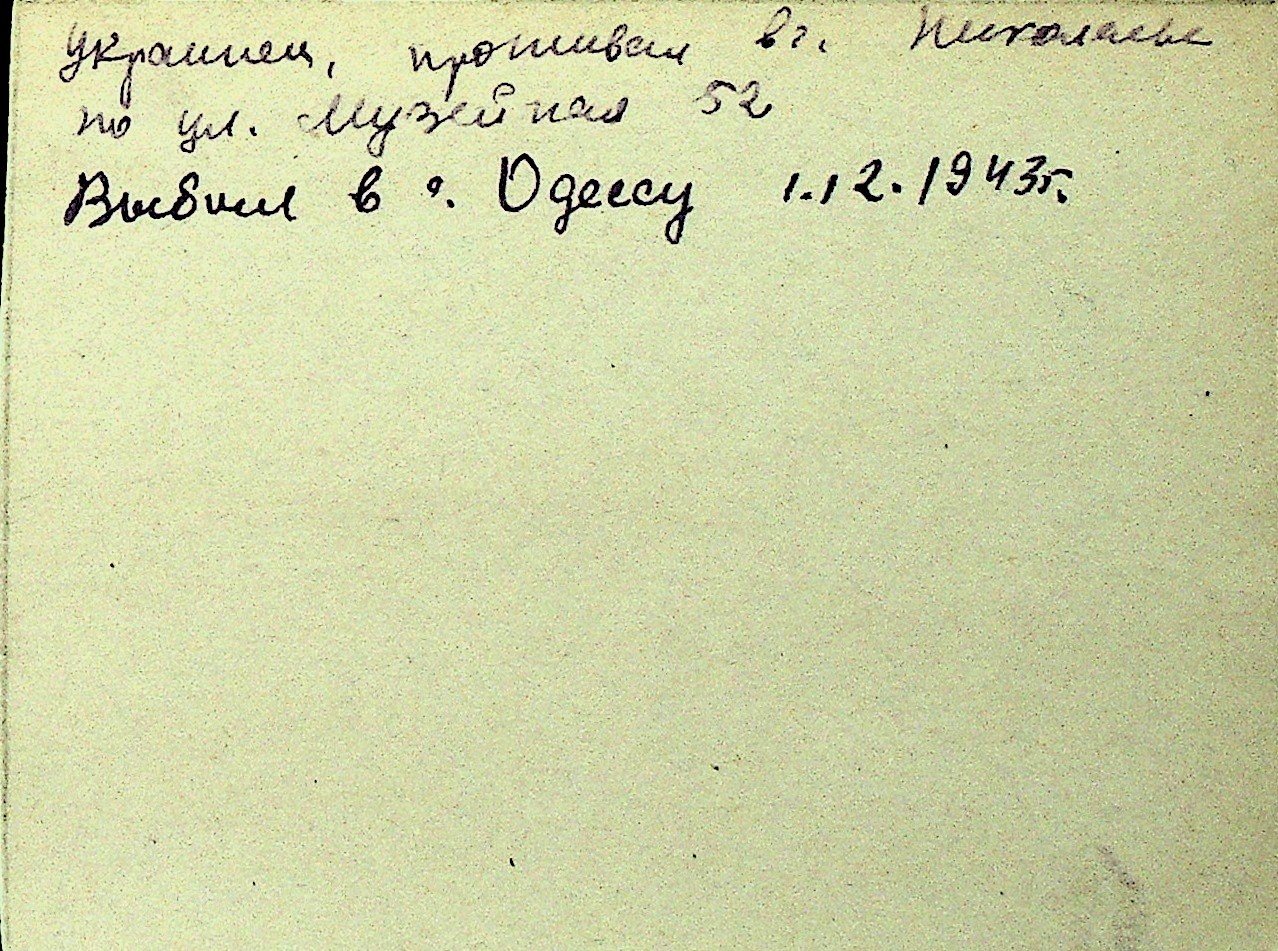 Украинец, проживал в г. Николаеве
по ул. Музейная 52
Выбыл в г. Одессу 1.12.1943г.